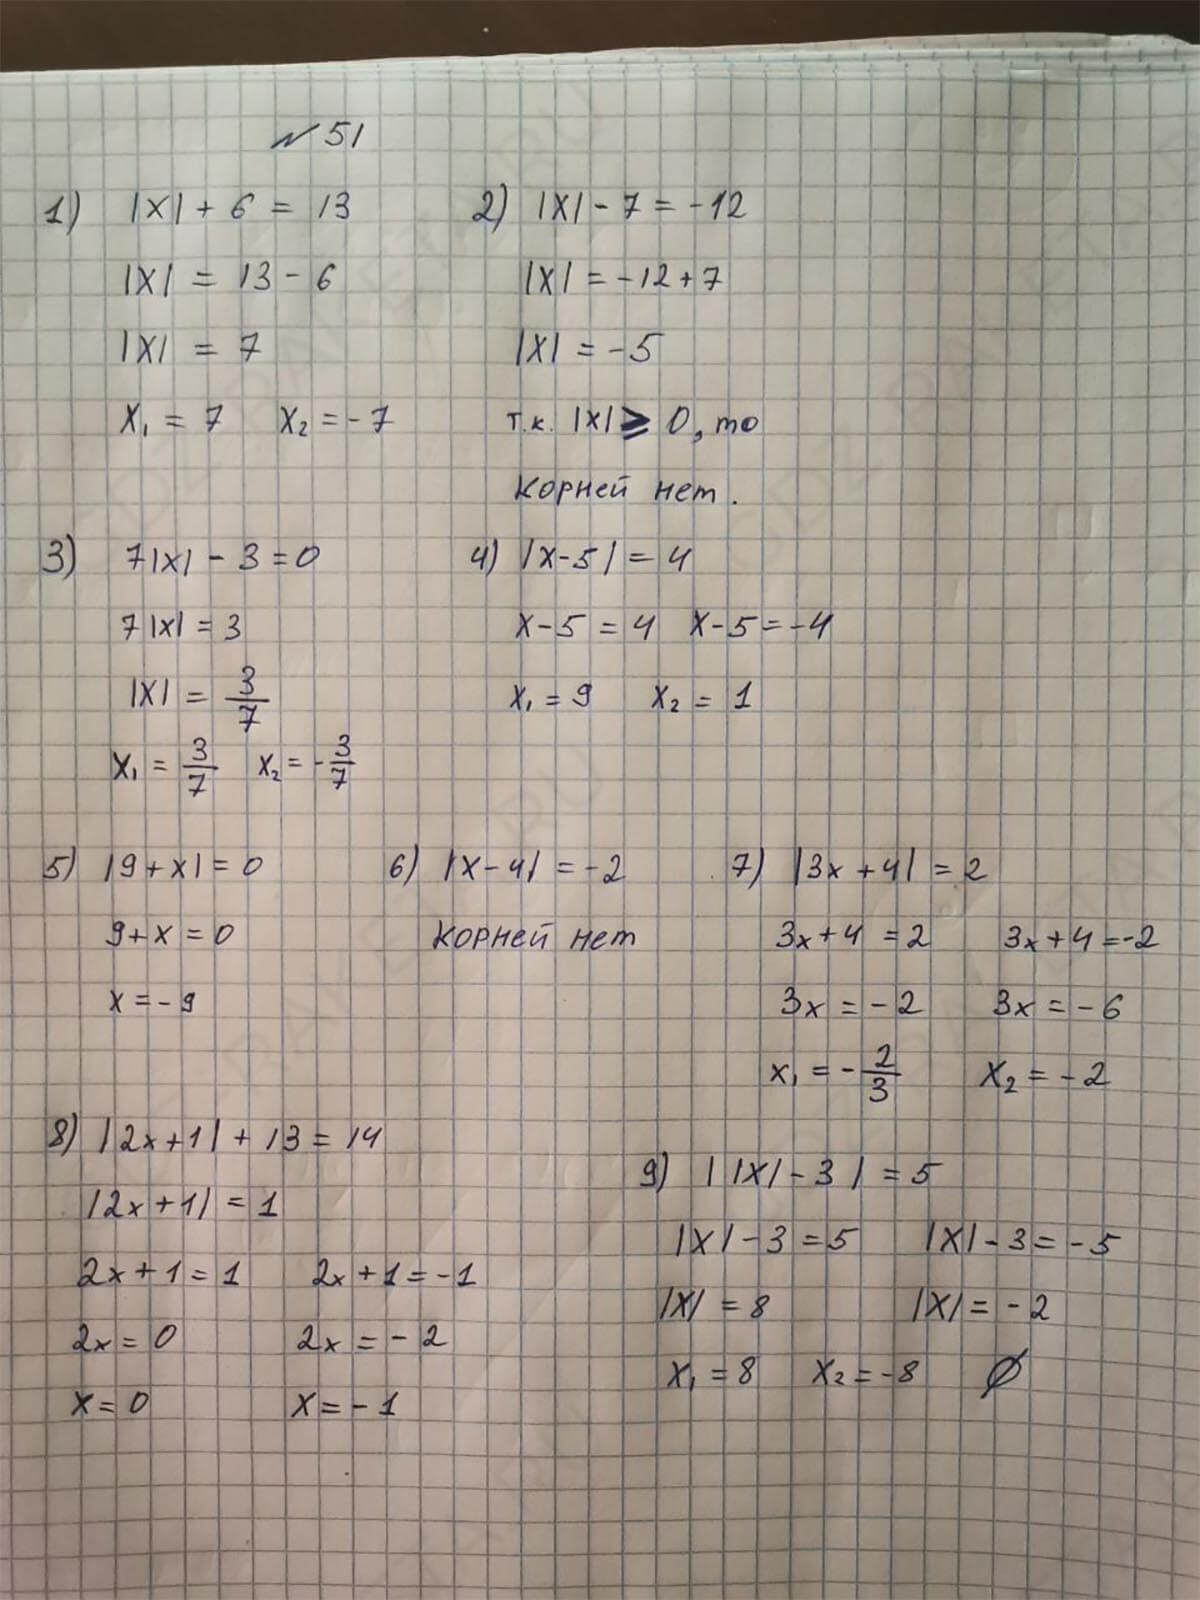 № 51
1) |x| + 6 = 13
|x| = 13 - 6
|x| = 7
x₁ = 7 x₂ = -7
2) |x| - 7 = -12
|x| = -12 + 7
|x| = -5
т.к. |x| ⩾ 0, то
корней нет.
3) 7|x| - 3 = 0
7|x| = 3
|x| = 3/7
x₁ = 3/7 x₂ = -3/7
4) |x - 5| = 4
x - 5 = 4 x - 5 = -4
x₁ = 9 x₂ = 1
5) |9 + x| = 0
9 + x = 0
x = -9
6) |x - 4| = -2
корней нет
7) |3x + 4| = 2
3x + 4 = 2 3x + 4 = -2
3x = -2 3x = -6
x₁ = -2/3 x₂ = -2
8) |2x + 1| + 13 = 14
|2x + 1| = 1
2x + 1 = 1 2x + 1 = -1
2x = 0 2x = -2
x = 0 x = -1
9) | |x| - 3 | = 5
|x| - 3 = 5 |x| - 3 = -5
|x| = 8 |x| = -2
x₁ = 8 x₂ = -8 ∅